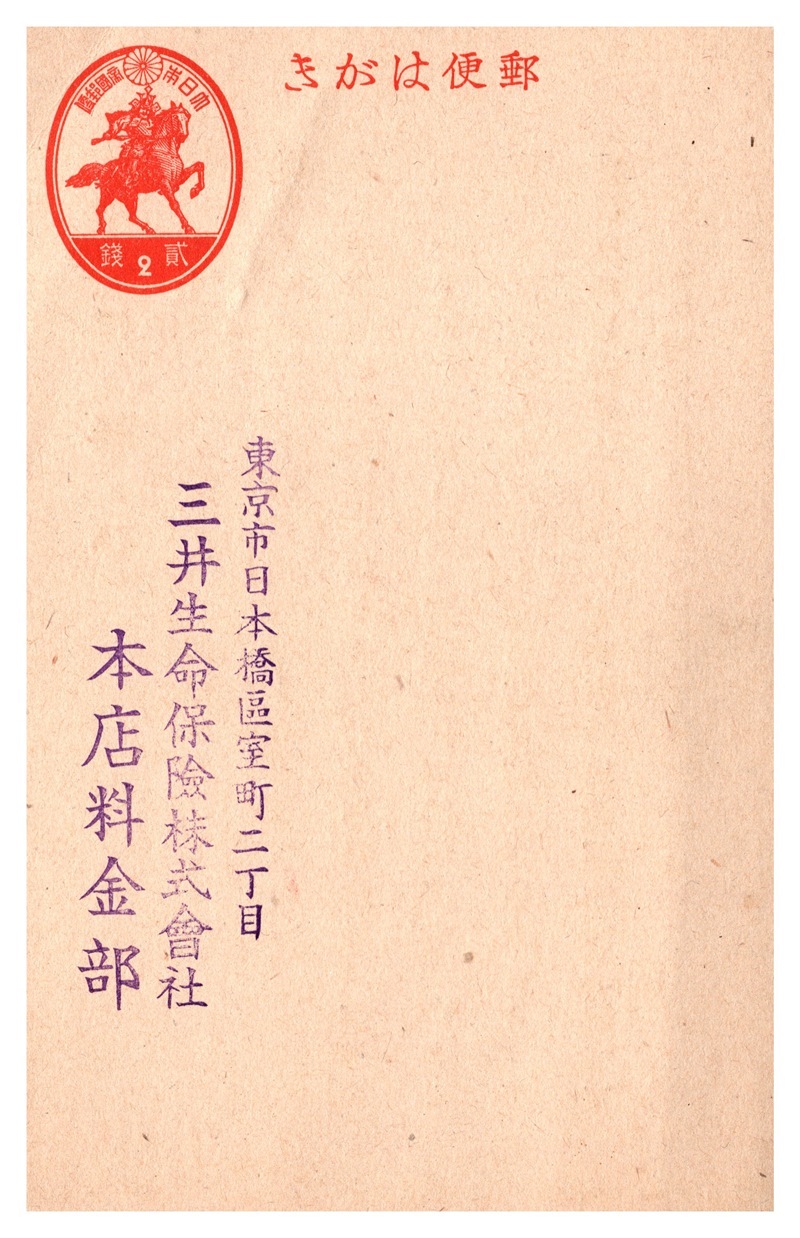 郵便はがき
大日本帝國郵便
貳2錢
東京市日本橋區室町二丁目
三井生命保險株式會社
本店料金部